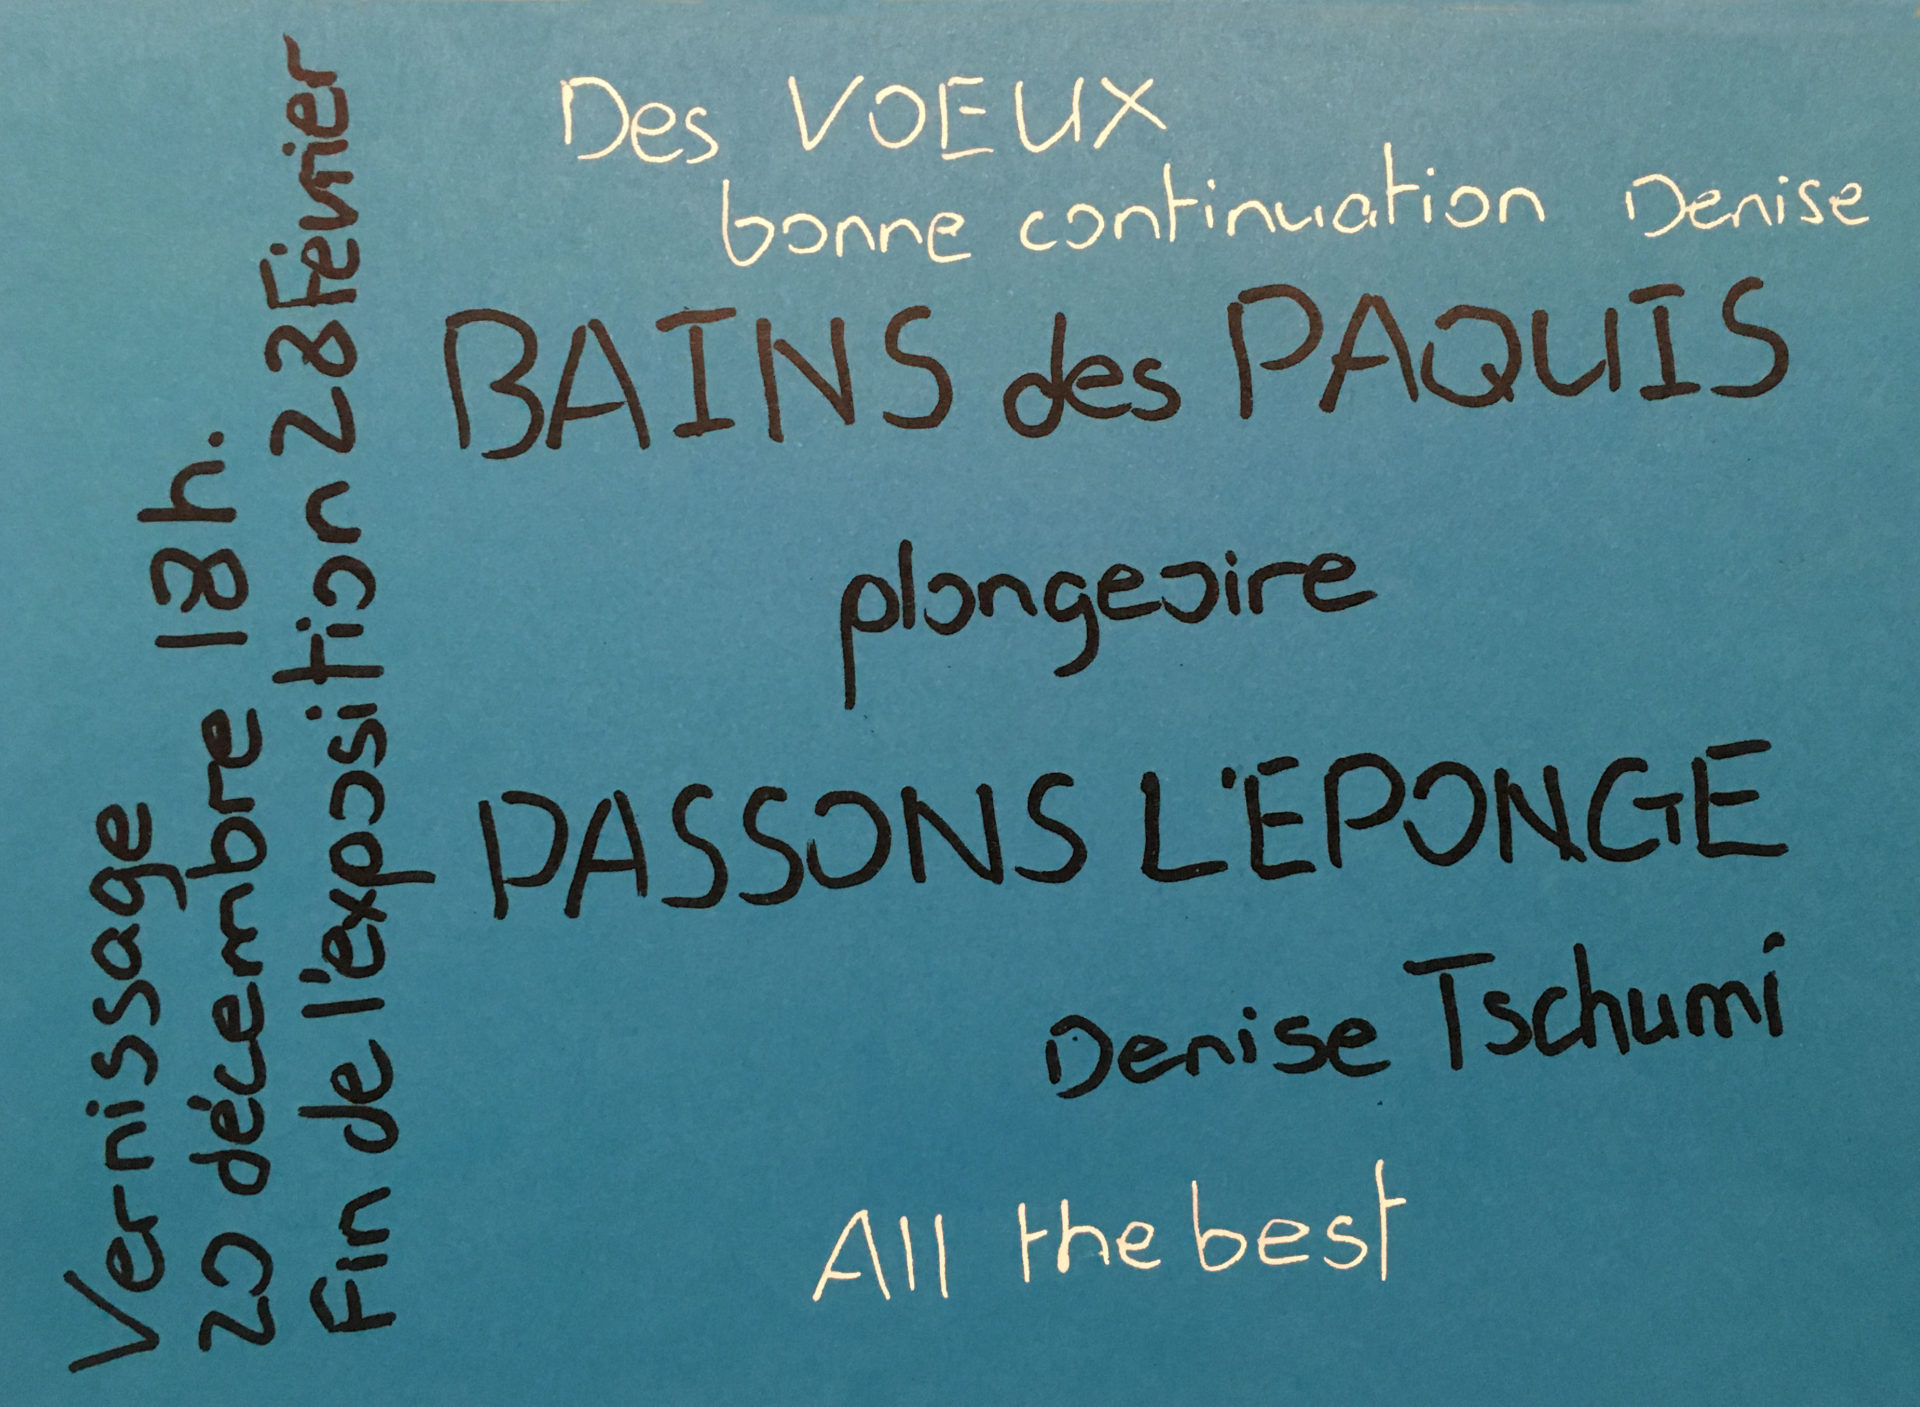 Des VOEUX
bonne continuation Denise
BAINS des PAQUIS
plongeoire
PASSONS L'EPONGE
Denise Tschumi
All the best
Vernissage
20 décembre 18h.
Fin de l'exposition 28 Février